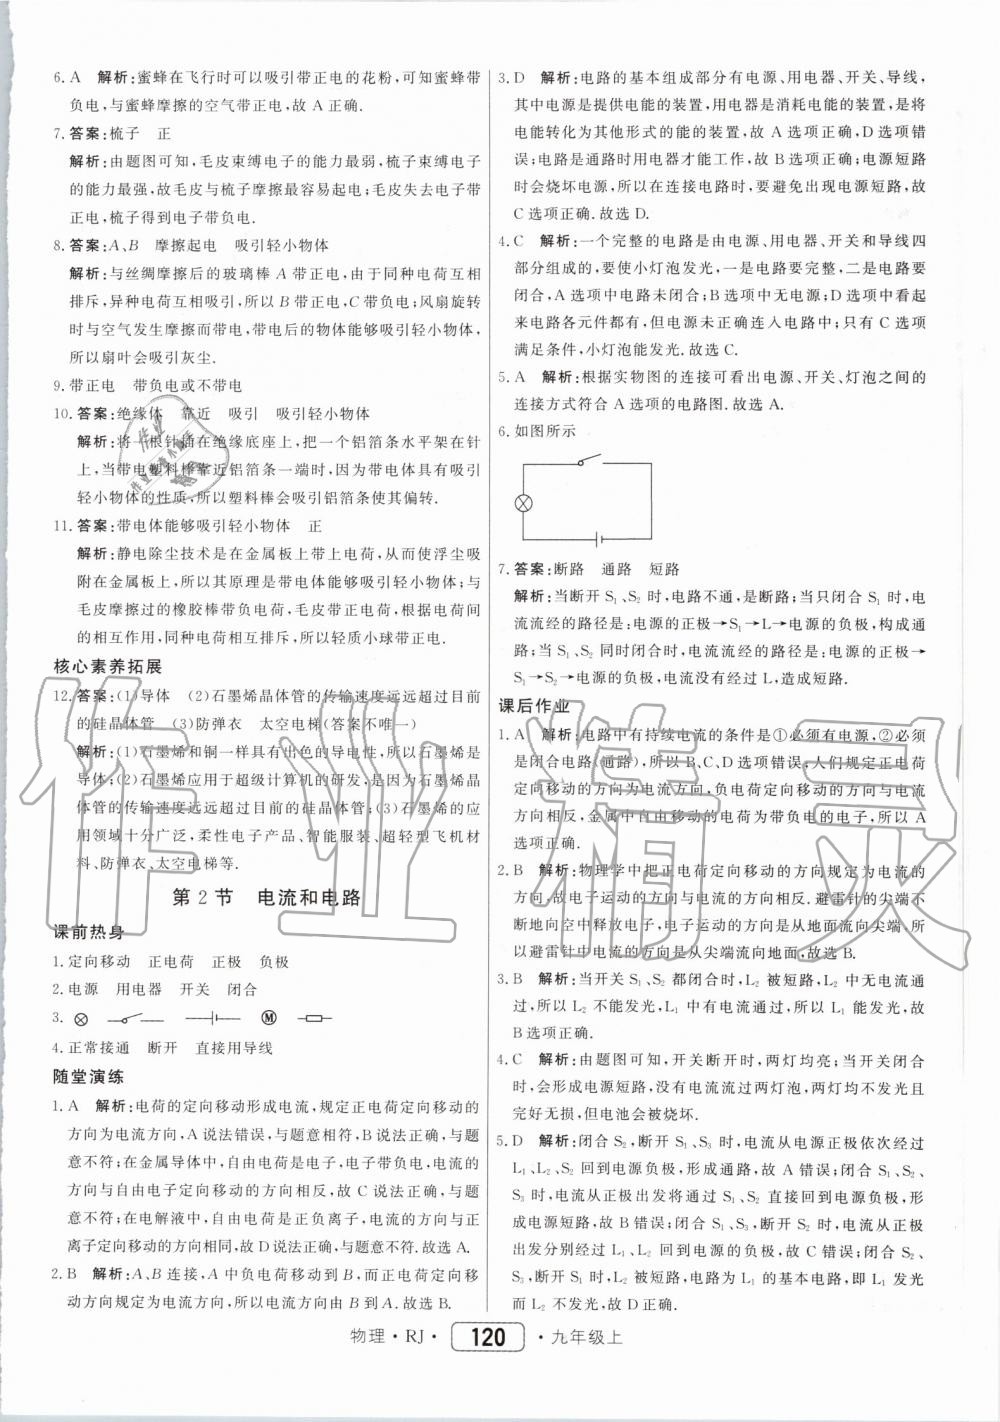 6. A　解析:蜜蜂在飞行时可以吸引带正电的花粉,可知蜜蜂带
负电,与蜜蜂摩擦的空气带正电,故 A 正确.
7. 答案:梳子　正
解析:由题图可知,毛皮束缚电子的能力最弱,梳子束缚电子
的能力最强,故毛皮与梳子摩擦最容易起电;毛皮失去电子带
正电,梳子得到电子带负电.
8. 答案:A、B　摩擦起电　吸引轻小物体
解析:与丝绸摩擦后的玻璃棒 A 带正电,由于同种电荷互相
排斥,异种电荷互相吸引,所以 B 带正电,C 带负电;风扇旋转
时与空气发生摩擦而带电,带电后的物体能够吸引轻小物体,
所以扇叶会吸引灰尘.
9. 带正电　带负电或不带电
10. 答案:绝缘体　靠近　吸引　吸引轻小物体
解析:将一根针插在绝缘底座上,把一个铝箔条水平架在针
上,当带电塑料棒靠近铝箔条一端时,因为带电体具有吸引
轻小物体的性质,所以塑料棒会吸引铝箔条使其偏转.
11. 答案:带电体能够吸引轻小物体　正
解析:静电除尘技术是在金属板上带上电荷,从而使浮尘吸
附在金属板上,所以其原理是带电体能够吸引轻小物体;与
毛皮摩擦过的橡胶棒带负电荷,毛皮带正电荷,根据电荷间
的相互作用,同种电荷相互排斥,所以轻质小球带正电.
核心素养拓展
12. 答案:(1)导体　(2)石墨烯晶体管的传输速度远远超过目前
的硅晶体管　(3)防弹衣　太空电梯(答案不唯一)
解析:(1)石墨烯和铜一样具有出色的导电性,所以石墨烯是
导体;(2)石墨烯应用于超级计算机的研发,是因为石墨烯晶
体管的传输速度远远超过目前的硅晶体管;(3)石墨烯的应
用领域十分广泛,柔性电子产品、智能服装、超轻型飞机材
料、防弹衣、太空电梯等.
第 2 节　电流和电路
课前热身
1. 定向移动　正电荷　正极　负极
2. 电源　用电器　开关　闭合
3.
M
4. 正常接通　断开　直接用导线
随堂演练
1. A　解析:电荷的定向移动形成电流,规定正电荷定向移动的
方向为电流方向,A 说法错误,与题意相符,B 说法正确,与题
意不符;在金属导体中,自由电荷是电子,电子带负电,电流的
方向与自由电子定向移动的方向相反,故 C 说法正确,与题
意不符;在电解液中,自由电荷是正负离子,电流的方向与正
离子定向移动的方向相同,故 D 说法正确,与题意不符.故选 A.
2. B　解析:A、B 连接,A 中负电荷移动到 B,而正电荷定向移
动方向规定为电流方向,所以电流方向由 B 到 A.故选 B.
3. D　解析:电路的基本组成部分有电源、用电器、开关、导线,
其中电源是提供电能的装置,用电器是消耗电能的装置,是将
电能转化为其他形式的能的装置,故 A 选项正确,D 选项错
误;电路是通路时用电器才能工作,故 B 选项正确;电源短路
时会烧坏电源,所以在连接电路时,要避免出现电源短路,故
C 选项正确.故选 D.
4. C　解析:一个完整的电路是由电源、用电器、开关和导线四
部分组成的,要使小灯泡发光,一是电路要完整,二是电路要
闭合,A 选项中电路未闭合;B 选项中无电源;D 选项中看起
来电路各元件都有,但电源未正确连入电路中;只有 C 选项
满足条件,小灯泡能发光.故选 C.
5. A　解析:根据实物图的连接可看出电源、开关、灯泡之间的
连接方式符合 A 选项的电路图.故选 A.
6. 如图所示
7. 答案:断路　通路　短路
解析:当断开 S₁、S₂ 时,电路不通,是断路;当只闭合 S₁ 时,电
流流经的路径是:电源的正极→S₁→L→电源的负极,构成通
路;当 S₁、S₂ 同时闭合时,电流流经的路径是:电源的正极→
S₁→S₂→电源的负极,电流没有经过 L,造成短路.
课后作业
1. A　解析:电路中有持续电流的条件是①必须有电源,②必须
是闭合电路(通路),所以 B、C、D 选项错误;人们规定正电荷
定向移动的方向为电流方向,负电荷定向移动的方向与电流
方向相反,金属中自由移动的电荷为带负电的电子,所以 A
选项正确.
2. B　解析:物理学中把正电荷定向移动的方向规定为电流的方
向,故电流的方向与电子定向移动的方向相反.避雷针的尖端不
断地向空中释放电子,电子运动的方向是从地面流向尖端,所
以避雷针中电流的方向是从尖端流向地面,故选 B.
3. B　解析:当开关 S₁、S₂ 都闭合时,L₂ 被短路,L₂ 中无电流通
过,所以 L₂ 不能发光,L₁ 中有电流通过,所以 L₁ 能发光,故
B 选项正确.
4. C　解析:由题图可知,开关断开时,两灯均亮;当开关闭合
时,会形成电源短路,没有电流流过两灯泡,两灯均不发光且
完好无损,但电池会被烧坏.
5. D　解析:闭合 S₂,断开 S₁、S₃ 时,电流从电源正极依次经过
L₁、L₂、S₂ 回到电源负极,形成通路,故 A 错误;闭合 S₁、S₂、
S₃ 时,电流从正极出发将通过 S₂、S₁ 直接回到电源负极,形
成电源短路,故 B 错误;闭合 S₁、S₃,断开 S₂ 时,电流从正极
出发分别经过 L₁、L₂ 回到电源的负极,故 C 错误;闭合 S₂、
S₃,断开 S₁ 时,L₂ 被短路,电路为 L₁ 的基本电路,即 L₁ 发光
而 L₂ 不发光,故 D 正确.
物理·RJ· 120 ·九年级上
作业精灵